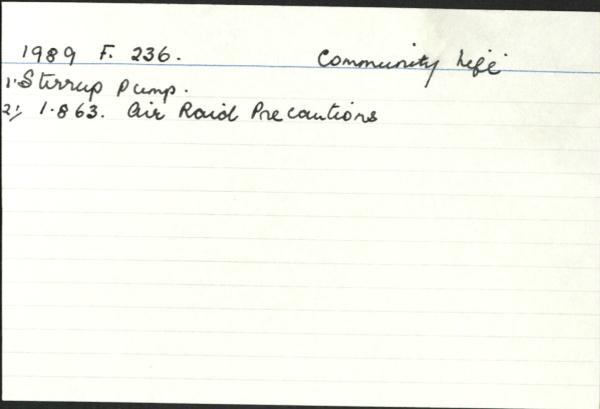 1989 F. 236. Community Life
1. Stirrup Pump.
2/ 1.863. Air Raid Precautions